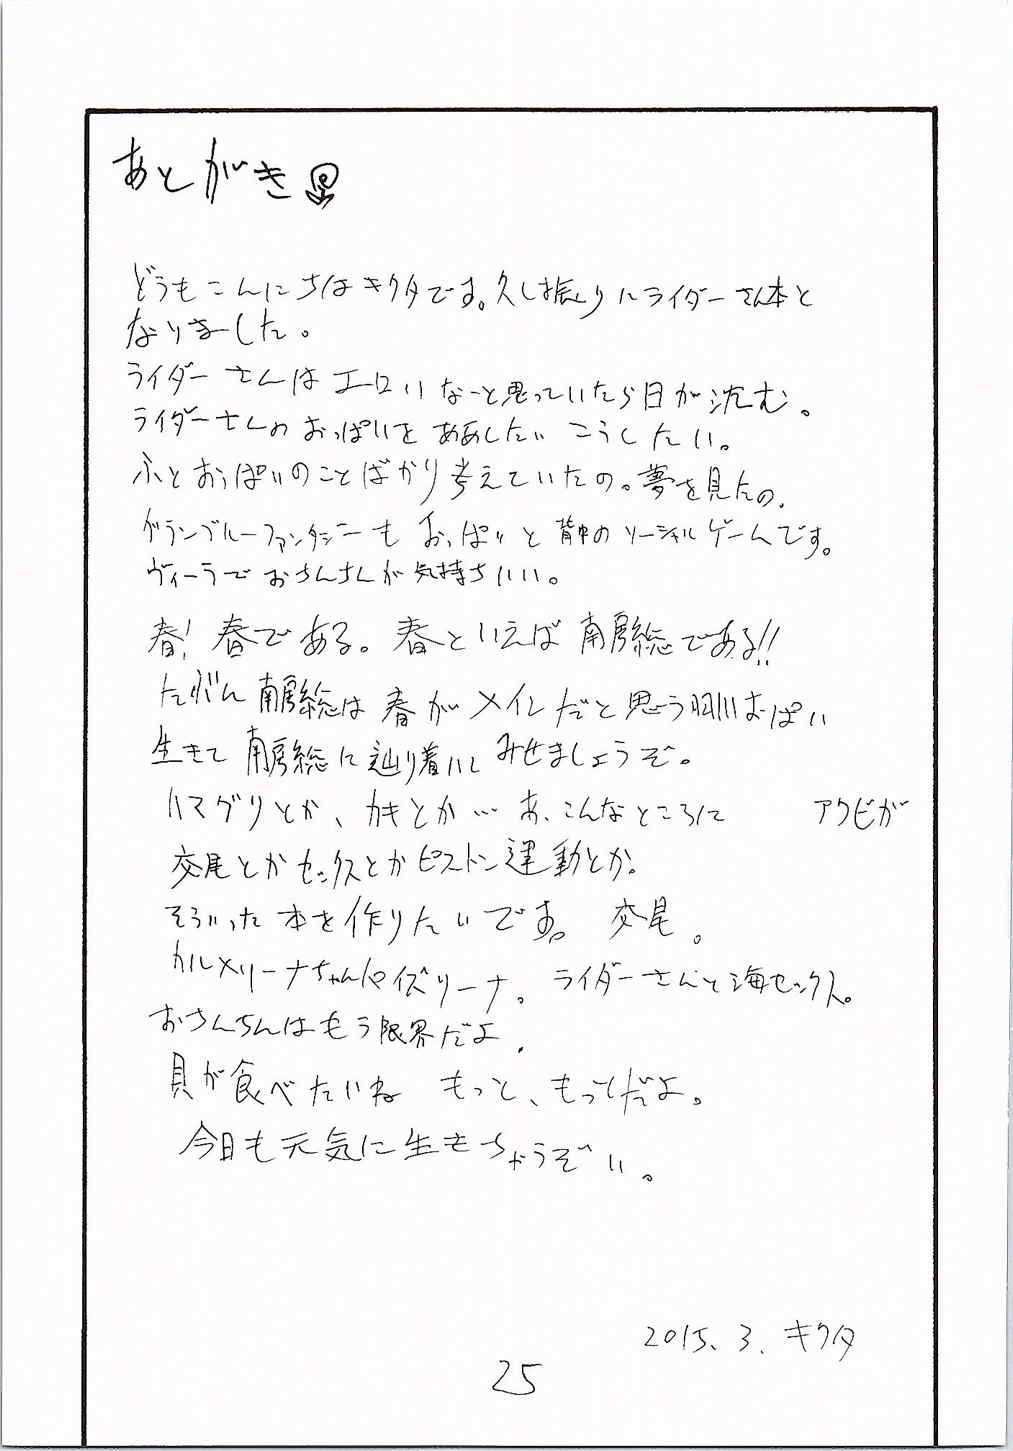 あとがき
どうもこんにちはキクタです。久し振りにライダーさん本と
なりました。
ライダーさんはエロいなーと思っていたら日が沈む。
ライダーさんのおっぱいをああしたいこうしたい。
ふとおっぱいのことばかり考えていたの。夢を見たの.
グランブルーファンタジーもおっぱいと背中のソーシャルゲームです。
ヴィーラでおちんちんが気持ちいい。
春!春である。春といえば南房総である!!
たぶん南房総は春がメインだと思う おっぱい
生きて南房総に辿り着いてみせましょうぞ。
ハマグリとか、カキとか…あ、こんなところに アワビが
交尾とかセックスとかピストン運動とか。
そういった本を作りたいです。 交尾。
カルメリーナちゃんパイズリーナ。 ライダーさんと海セックス。
おちんちんはもう限界だよ.
貝が食べたいね もっと、もっとだよ。
今日も元気に生きちゃうぞい。
2015.3.キクタ
25